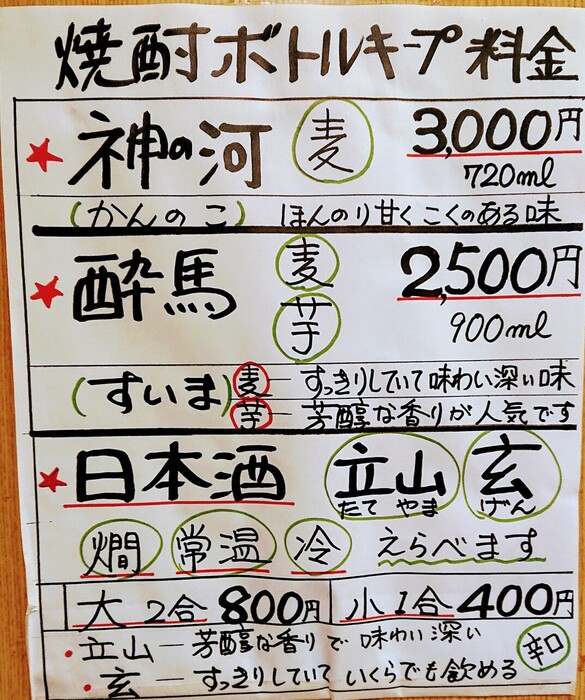 焼酎ボトルキープ料金
★神の河 麦 3,000円
720ml
(かんのこ) ほんのり甘くこくのある味
★酔馬 麦 芋 2,500円
900ml
(すいま) 麦— すっきりしていて味わい深い味
芋— 芳醇な香りが人気です
★日本酒 立山 玄
たて やま げん
燗 常温 冷 えらべます
大 2合 800円 小 1合 400円
・立山 — 芳醇な香りで 味わい深い 辛口
・玄 — すっきりしていて いくらでも飲める